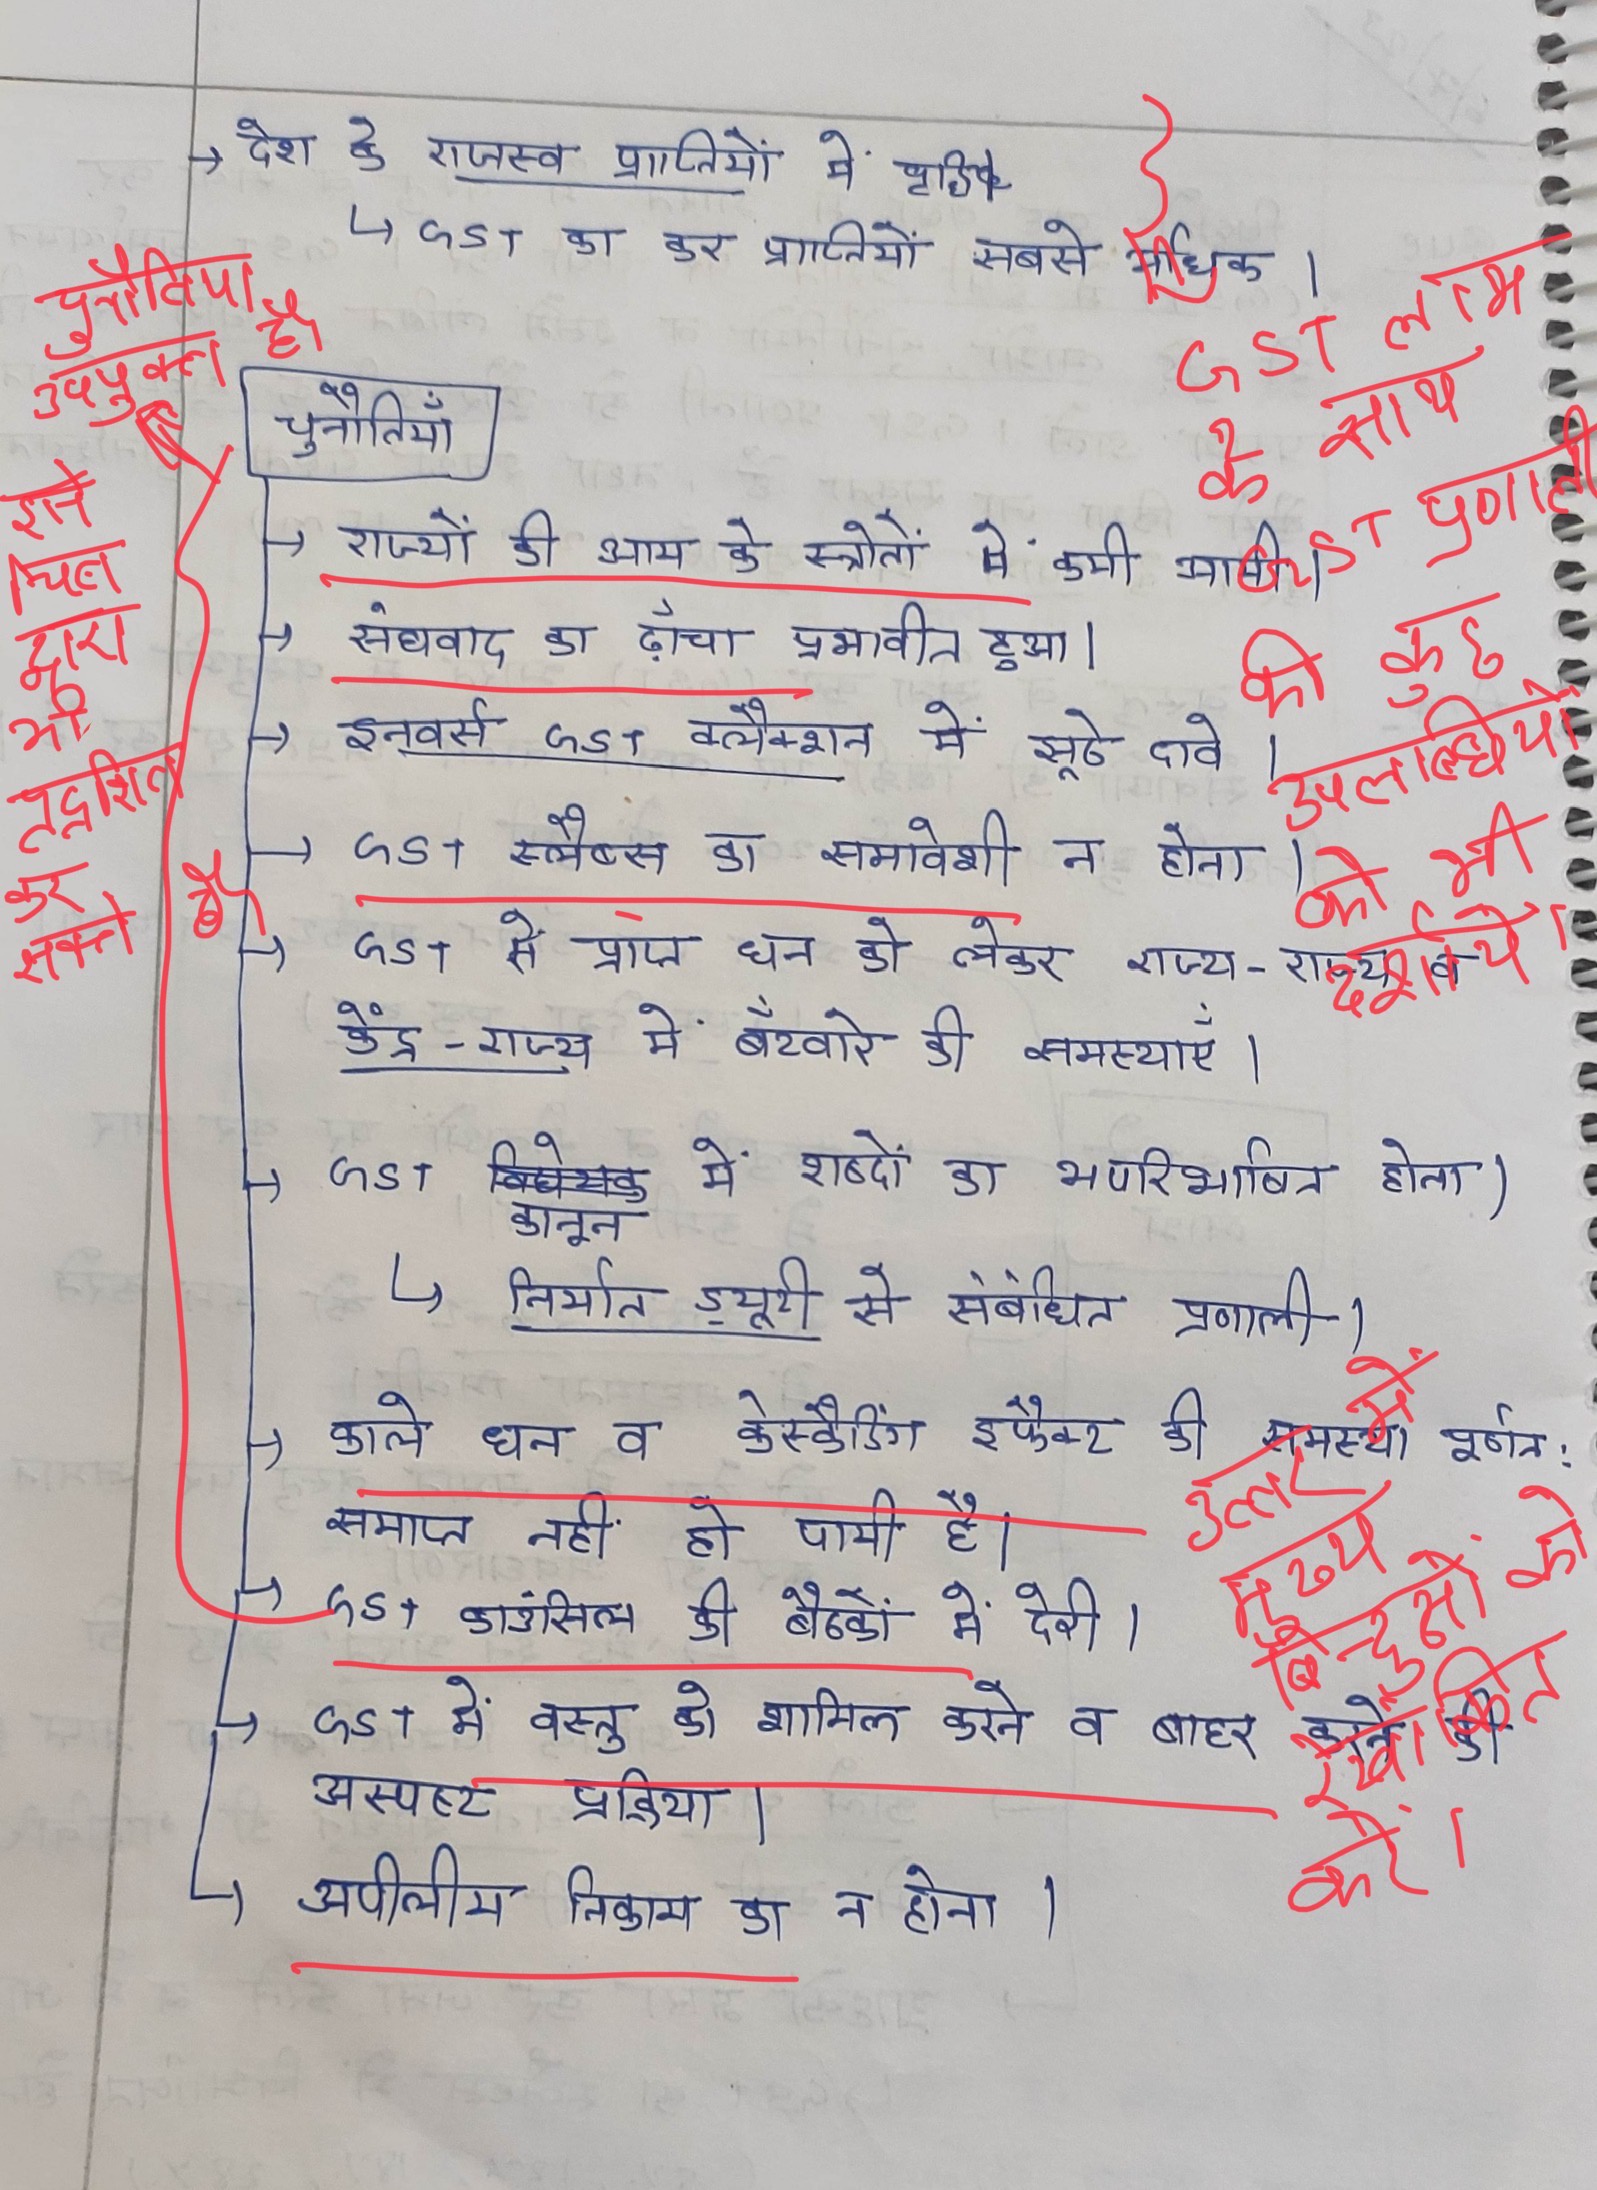 → देश के राजस्व प्राप्तियों में वृद्धि
↳ GST का कर प्राप्तियों सबसे अधिक ।
चुनौतियाँ
→ राज्यों की आय के स्त्रोतों में कमी आयी।
→ संघवाद का ढ़ाँचा प्रभावीत हुआ।
→ इनवर्स GST क्लैक्शन में झूठे दावे ।
→ GST स्लैब्स का समावेशी न होना ।
→ GST से प्राप्त धन को लेकर राज्य-राज्य व
केंद्र-राज्य में बँटवारे की समस्याएँ ।
→ GST विधेयक में शब्दों का अपरिभाषित होना।
कानून
↳ निर्यात ड्यूटी से संबंधित प्रणाली।
→ काले धन व केस्कैडिंग इफैक्ट की समस्या पूर्णत:
समाप्त नहीं हो पायी है।
→ GST काउंसिल की बैठकों में देरी ।
→ GST में वस्तु को शामिल करने व बाहर करने की
अस्पष्ट प्रक्रिया।
→ अपीलीय निकाय का न होना ।
चुनौतिया
उपयुक्त है।
इसे
चित्र
द्वारा
भी
प्रदर्शित
कर
सकते है।
GST लाभ
के साथ
GST प्रणाली
की कुछ
उपलब्धियों
को भी
दर्शायें।
उत्तर में
मुख्य
बिन्दुओं को
रेखांकित
करें।